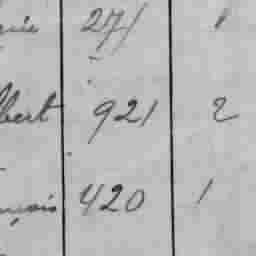 271 1
bert 921 2
çois 420 1